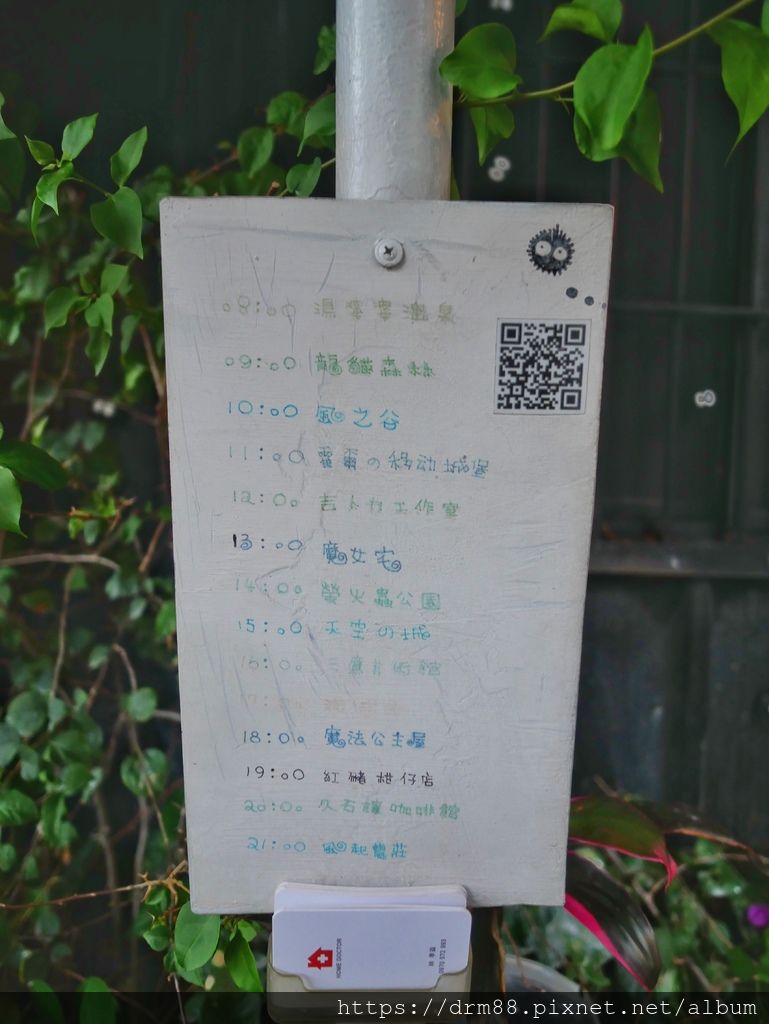 08:00 湯婆婆溫泉
09:00 龍貓森林
10:00 風之谷
11:00 霍爾の移动城堡
12:00 吉卜力工作室
13:00 魔女宅
14:00 螢火蟲公園
15:00 天空の城
16:00 三鷹美術館
18:00 魔法公主屋
19:00 紅豬柑仔店
20:00 久石讓咖啡館
21:00 風起山莊
HOME DOCTOR
0970 572 993
https://drm88.pixnet.net/album